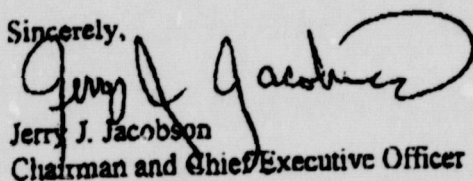 Sincerely,
Jerry J. Jacobson
Jerry J. Jacobson
Chairman and Chief Executive Officer